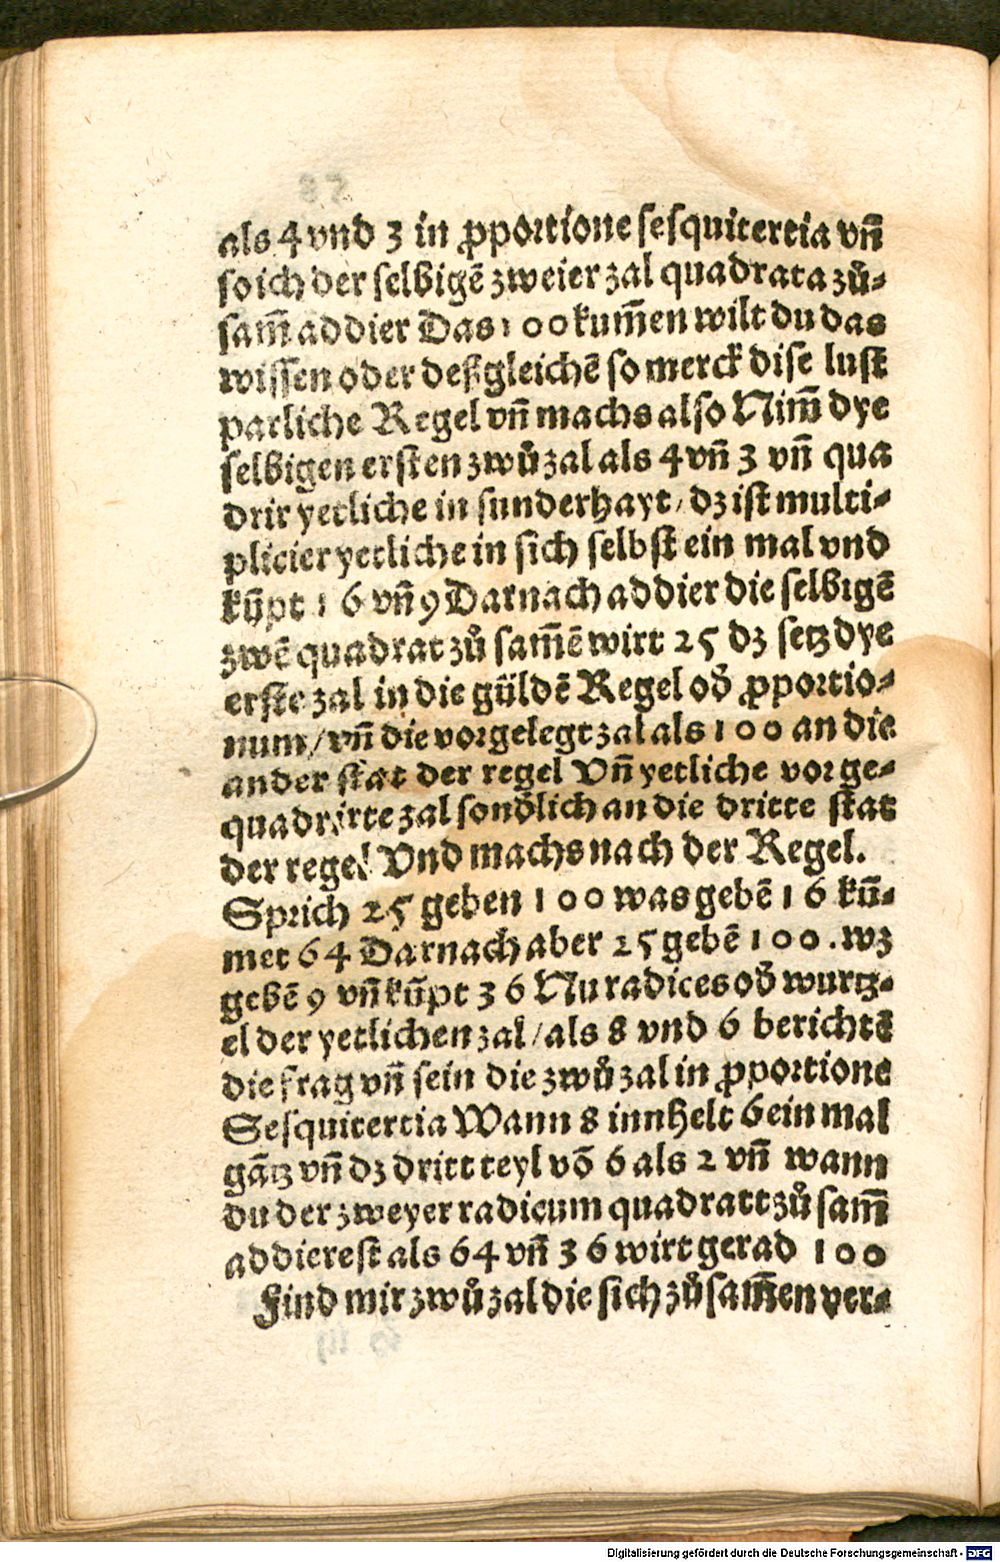 als 4 vnd 3 in ꝓportione sesquitertia vn̄
so ich der selbigē zweier zal quadrata zů-
sam̄ addier Das 100 kum̄en wilt du das
wissen oder deßgleichē so merck dise lust
parliche Regel vn̄ machs also Nim̄ dye
selbigen ersten zwů zal als 4 vn̄ 3 vn̄ qua
drir yetliche in sunderhayt / dz ist multi-
plicier yetliche in sich selbst ein mal vnd
kūpt 16 vn̄ 9 Darnach addier die selbigē
zwē quadrat zů sam̄ē wirt 25 dz setz dye
erste zal in die güldē Regel od̄ ꝓportio-
num / vn̄ die vorgelegt zal als 100 an die
ander stat der regel Vn̄ yetliche vor ge-
quadrirte zal sond̄lich an die dritte stat
der regel Vnd machs nach der Regel.
Sprich 25 geben 100 was gebē 16 kū-
met 64 Darnach aber 25 gebē 100. wz
gebē 9 vn̄ kūpt 36 Nu radices od̄ wurtz-
el der yetlichen zal / als 8 vnd 6 berichtē
die frag vn̄ sein die zwů zal in ꝓportione
Sesquitertia Wann 8 innhelt 6 ein mal
gātz vn̄ dz dritt teyl vō 6 als 2 vn̄ wann
du der zweyer radicum quadratt zů sam̄
addierest als 64 vn̄ 36 wirt gerad 100
Find mir zwů zal die sich zů sam̄en ver-
Digitalisierung gefördert durch die Deutsche Forschungsgemeinschaft - DFG